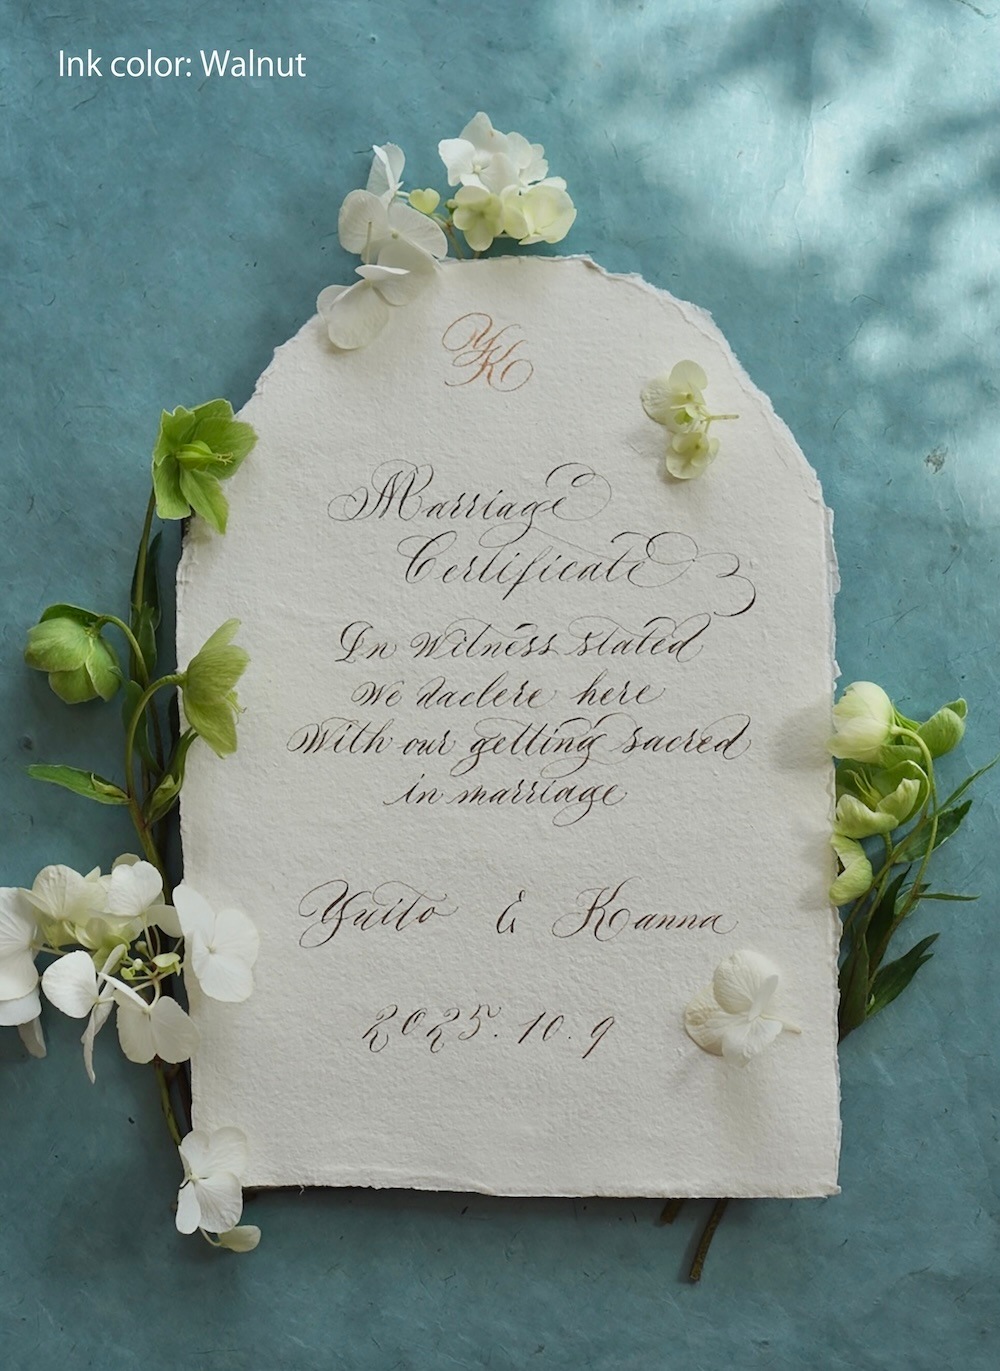 Ink color: Walnut
YK
Marriage
Certificate
In Witness stated
We daclere here
With our getting sacred
in marriage
Yuito & Kanna
2025. 10. 9